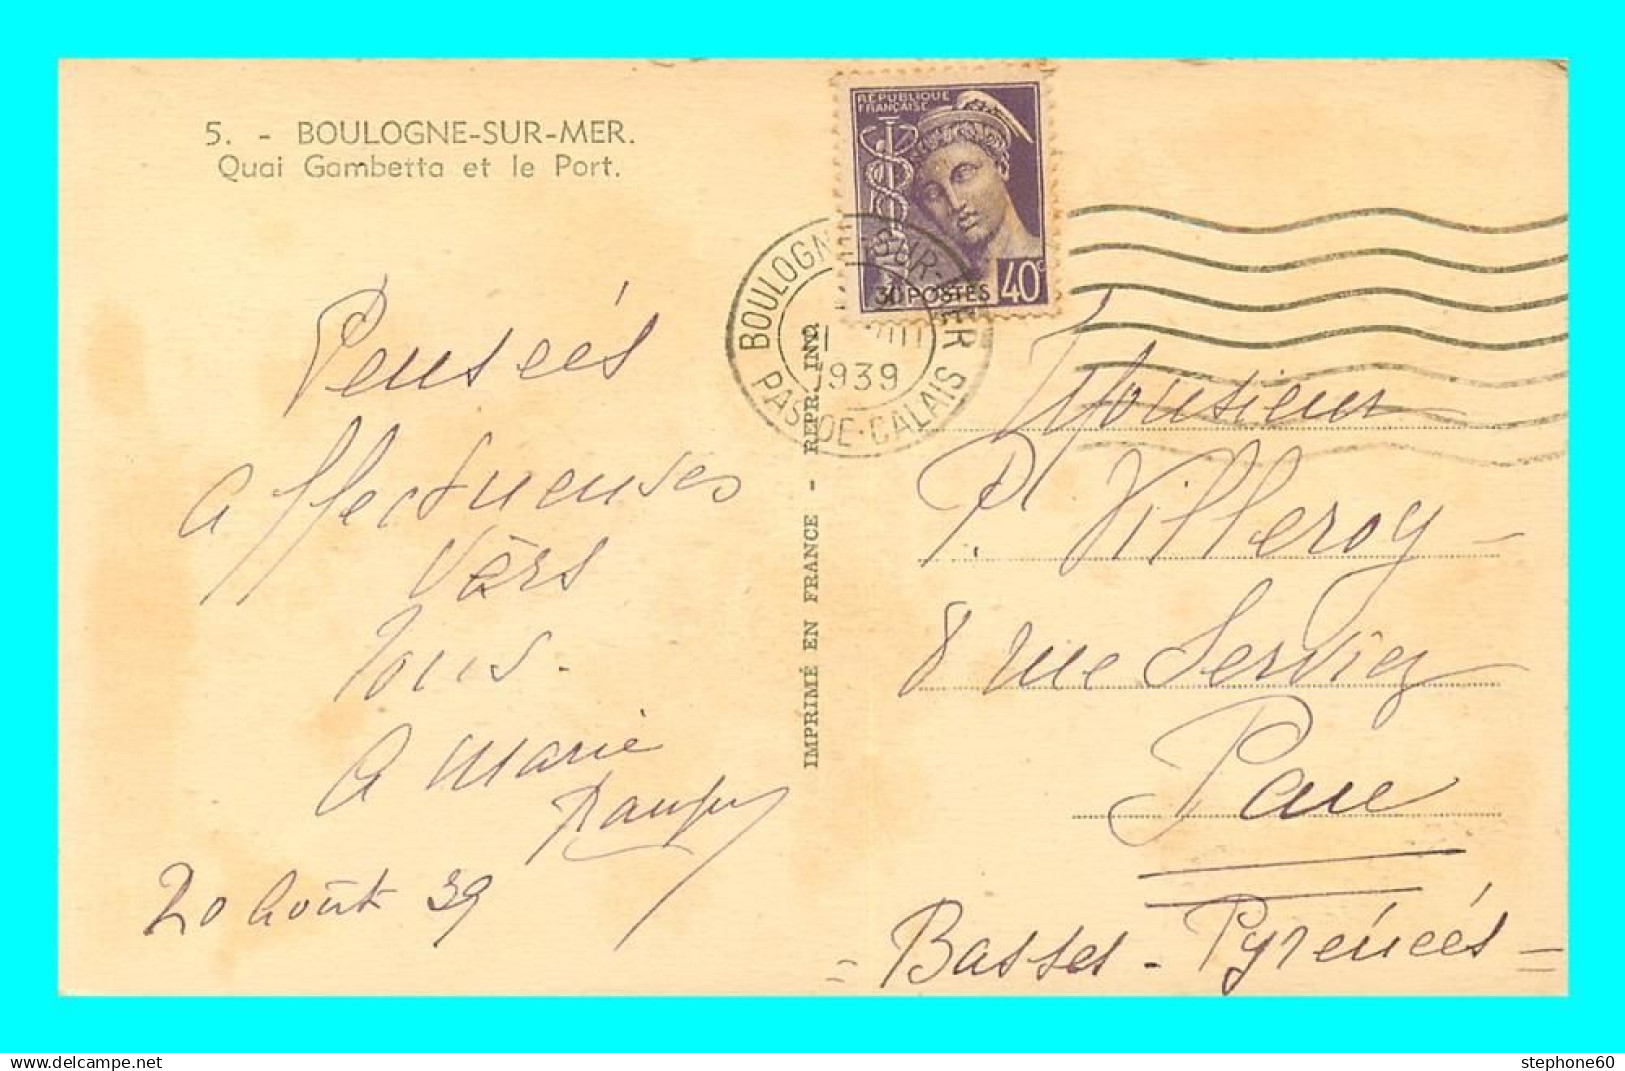 5. - BOULOGNE-SUR-MER.
Quai Gambetta et le Port.
RÉPUBLIQUE
FRANÇAISE
POSTES 40c
BOULOGNE-SUR-MER
1939
PAS-DE-CALAIS
IMPRIMÉ EN FRANCE - REPR. INT.
Pensées
Affectueuses
Vers
Tous -
A Marie
20 Août 39
Monsieur
P. Villeroy -
8 rue Serviez
Pau
= Basses - Pyrénées =
stephone60